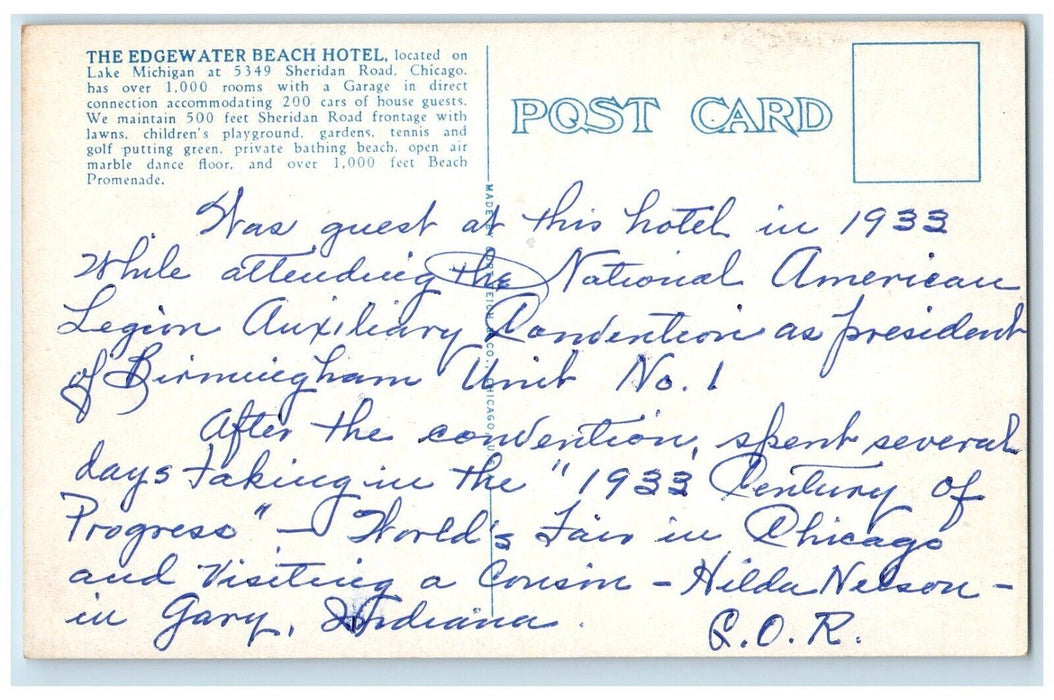 THE EDGEWATER BEACH HOTEL, located on
Lake Michigan at 5349 Sheridan Road, Chicago,
has over 1,000 rooms with a Garage in direct
connection accommodating 200 cars of house guests.
We maintain 500 feet Sheridan Road frontage with
lawns, children's playground, gardens, tennis and
golf putting green, private bathing beach, open air
marble dance floor, and over 1,000 feet Beach
Promenade.
POST CARD
MADE
CO., CHICAGO
Was guest at this hotel in 1933
While attending the National American
Legion Auxiliary Convention as president
of Birmingham Unit No. 1
After the convention, spent several
days taking in the "1933 Century of
Progress" – World's Fair in Chicago
and visiting a Cousin – Hilda Nelson –
in Gary, Indiana.
C.O.R.